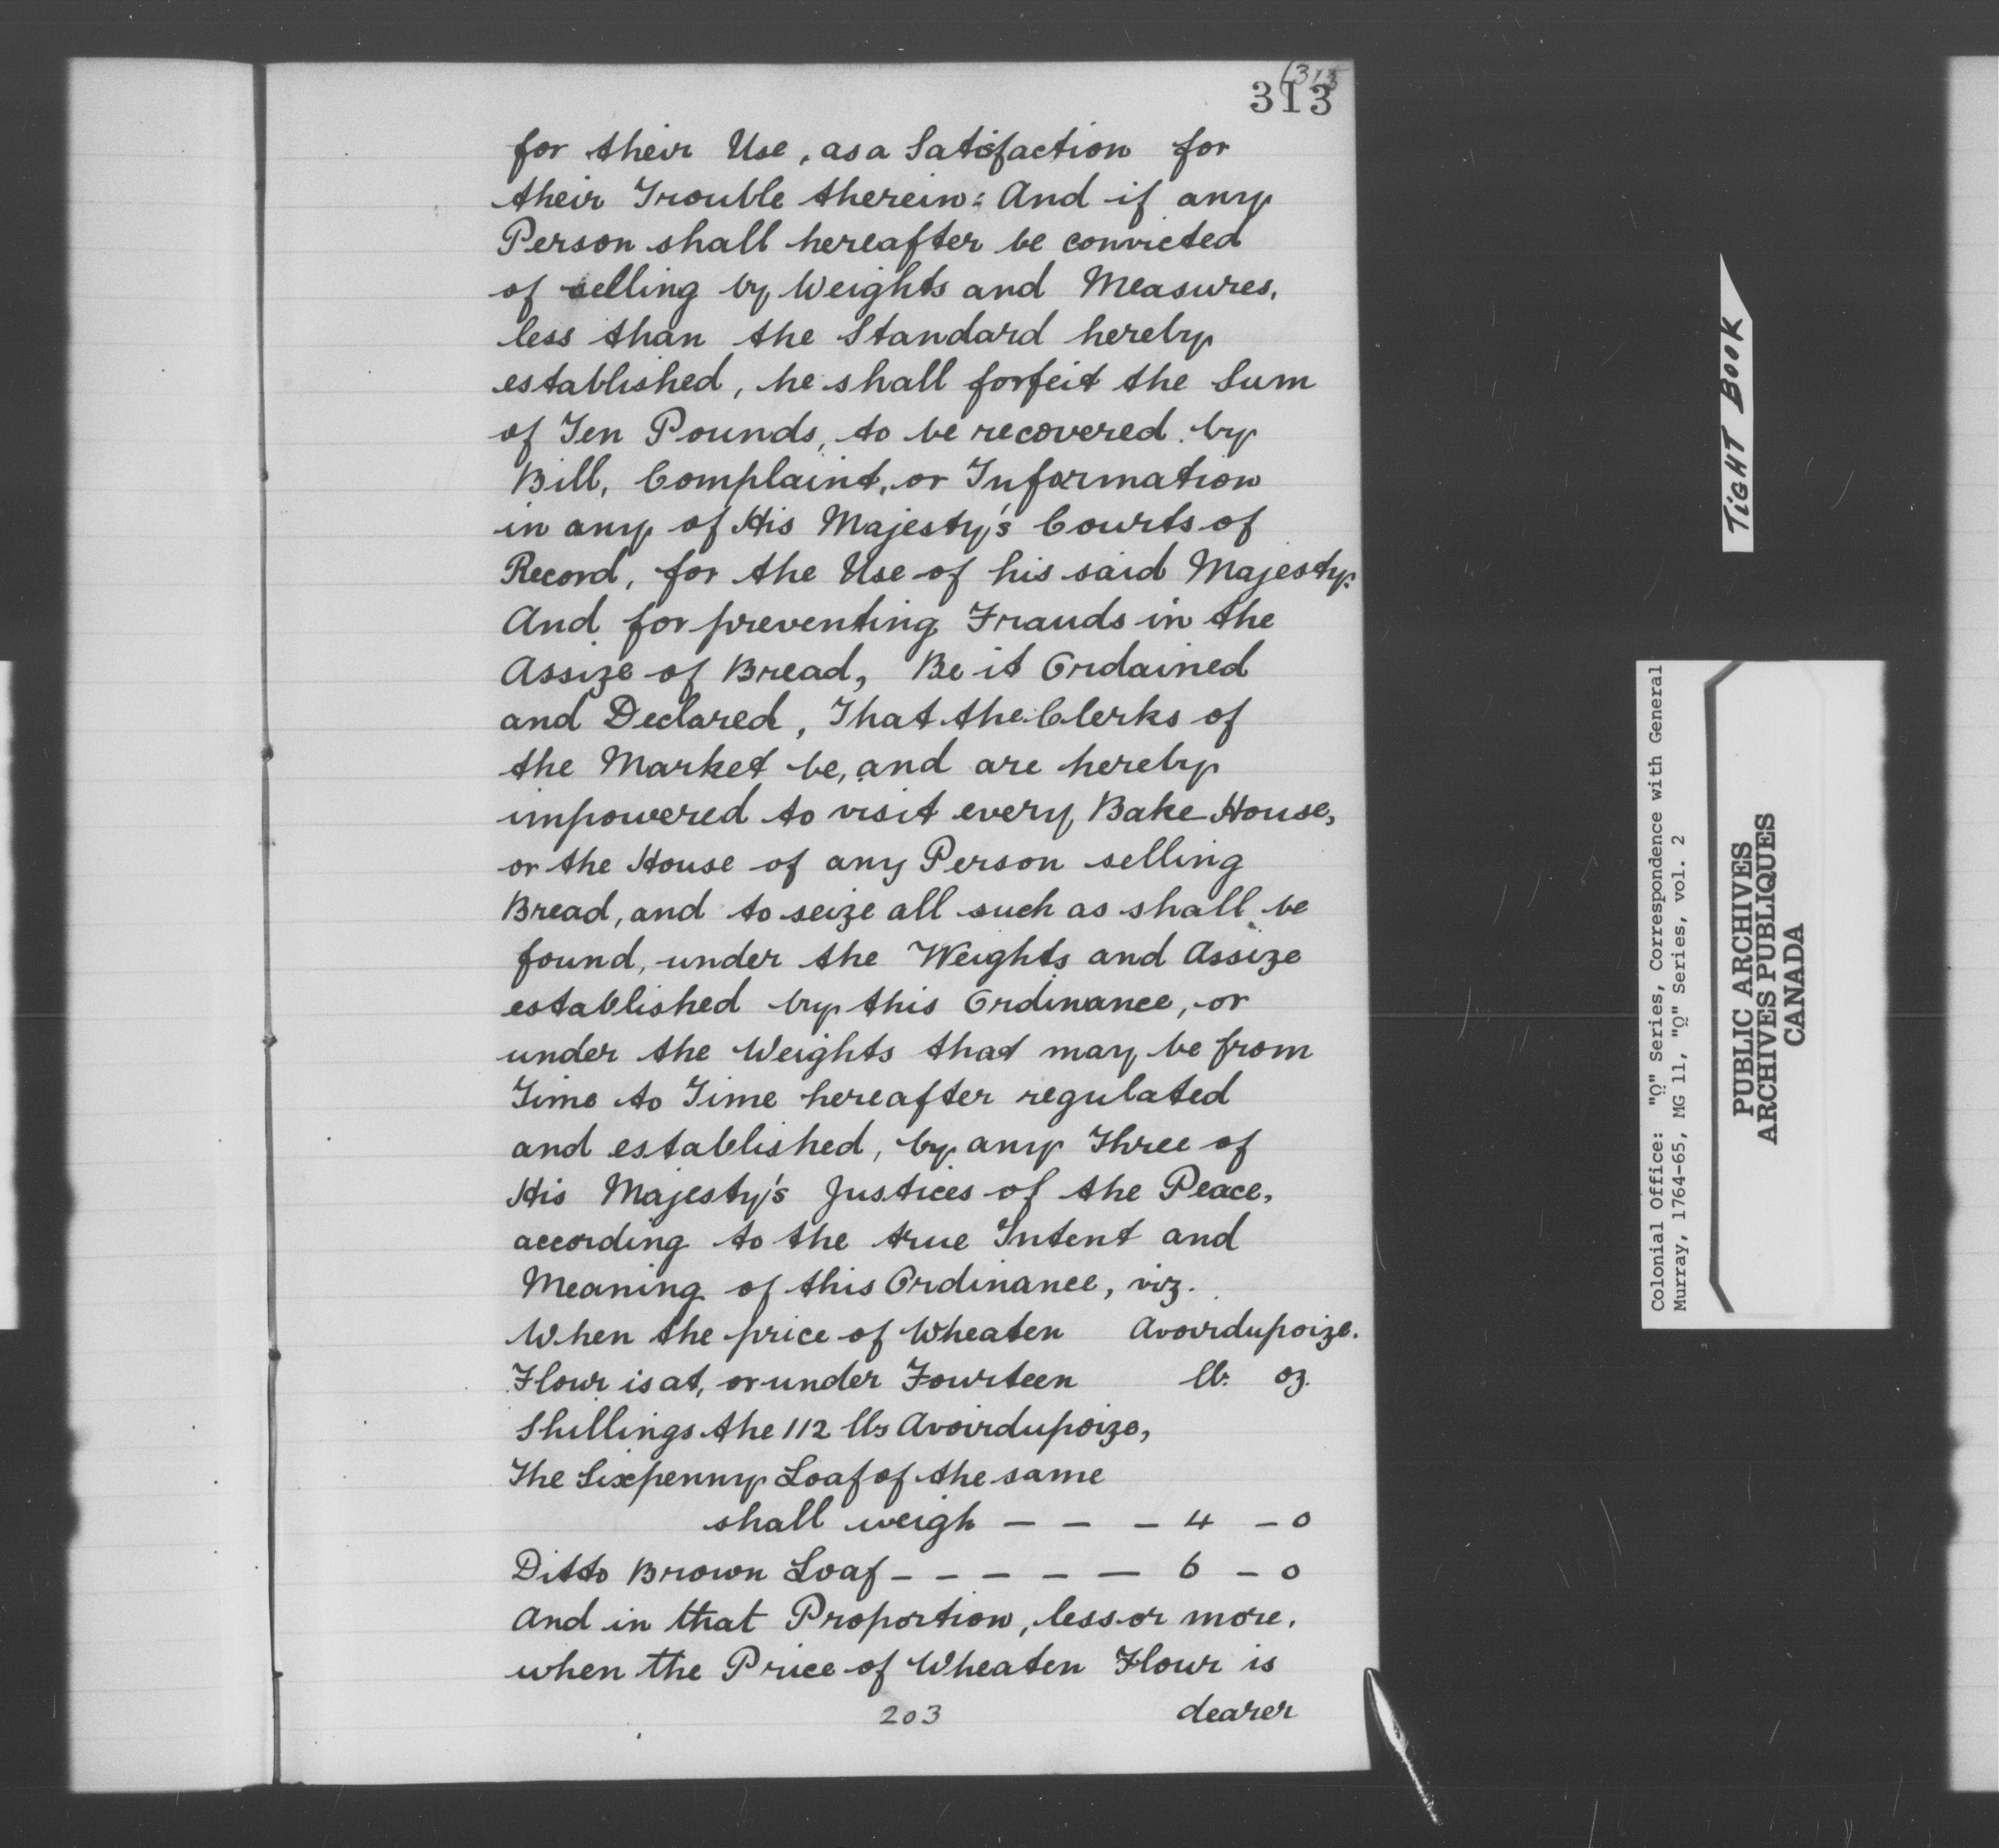 (313
313
for their Use, as a Satisfaction for
their Trouble therein: And if any
Person shall hereafter be convicted
of selling by Weights and Measures,
less than the Standard hereby
established, he shall forfeit the Sum
of Ten Pounds, to be recovered by
Bill, Complaint, or Information
in any of His Majesty's Courts of
Record, for the Use of his said Majesty.
And for preventing Frauds in the
Assize of Bread, Be it Ordained
and Declared, That the Clerks of
the Market be, and are hereby
impowered to visit every Bake House,
or the House of any Person selling
Bread, and to seize all such as shall be
found, under the Weights and Assize
established by this Ordinance, or
under the Weights that may be from
Time to Time hereafter regulated
and established, by any Three of
His Majesty's Justices of the Peace,
according to the true Intent and
Meaning of this Ordinance, viz.
When the price of Wheaten Avoirdupoize.
Flour is at, or under Fourteen lb. oz.
Shillings the 112 lbs Avoirdupoize,
The Sixpenny Loaf of the same
shall weigh — — — 4 — 0
Ditto Brown Loaf — — — — — 6 — 0
And in that Proportion, less or more,
when the Price of Wheaten Flour is
203 dearer
TIGHT BOOK
Colonial Office: "Q" Series, Correspondence with General
Murray, 1764-65, MG 11, "Q" Series, vol. 2
PUBLIC ARCHIVES
ARCHIVES PUBLIQUES
CANADA